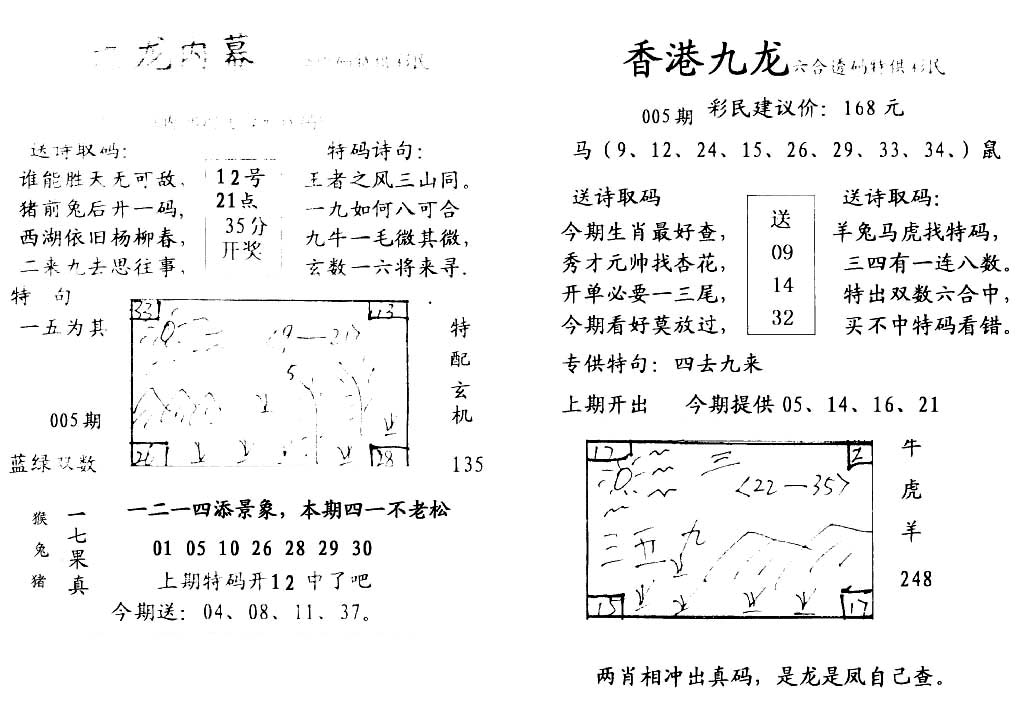 龙内幕
送诗取码：
谁能胜天无可敌，
猪前兔后开一码，
西湖依旧杨柳春，
二来九去思往事，
12号
21点
35分
开奖
特码诗句：
王者之风三山同。
一九如何八可合
九牛一毛微其微，
玄数一六将来寻.
特 句
一五为其
005期
蓝绿双数
33
13
〈9—21〉
5
26
28
特
配
玄
机
135
猴
兔
猪
一
七
果
真
一二一四添景象，本期四一不老松
01 05 10 26 28 29 30
上期特码开12 中了吧
今期送：04、08、11、37。
香港九龙六合透码特供彩民
005期 彩民建议价：168 元
马（9、12、24、15、26、29、33、34、）鼠
送诗取码
今期生肖最好查，
秀才元帅找杏花，
开单必要一三尾，
今期看好莫放过，
送
09
14
32
送诗取码：
羊兔马虎找特码，
三四有一连八数。
特出双数六合中，
买不中特码看错。
专供特句：四去九来
上期开出 今期提供 05、14、16、21
17
2
三
〈22—35〉
三五九
15
17
牛
虎
羊
248
两肖相冲出真码，是龙是凤自己查。